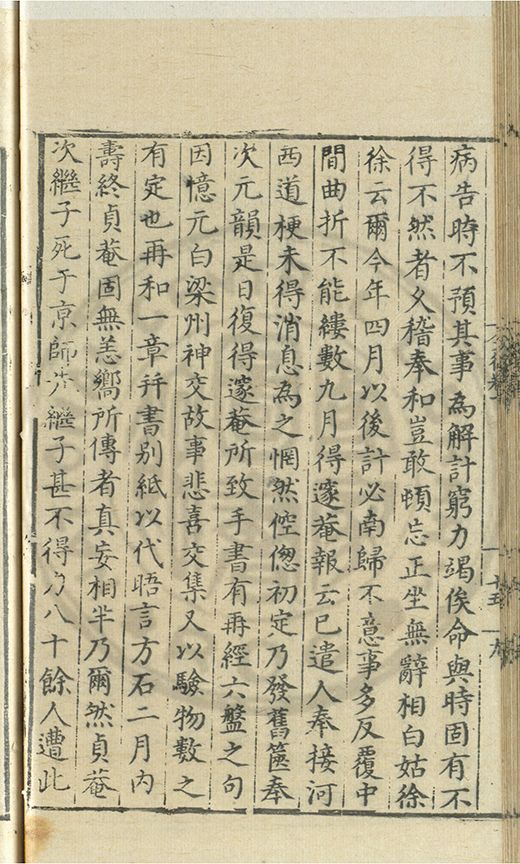 病告時不預其事為解計窮力竭俟命與時固有不
得不然者久稽奉和豈敢頓忘正坐無辭相白姑徐
徐云爾今年四月以後計必南歸不意事多反覆中
間曲折不能縷數九月得邃菴報云已遣人奉接河
西道梗未得消息為之惘然倥偬初定乃發舊篋奉
次元韻是日復得邃菴所致手書有再經六盤之句
因憶元白梁州神交故事悲喜交集又以驗物數之
有定也再和一章幷書別紙以代晤言方石二月內
壽終貞菴固無恙嚮所傳者真妄相半乃爾然貞菴
次繼子死于京師繼子甚不得力八十餘人遭此
十五